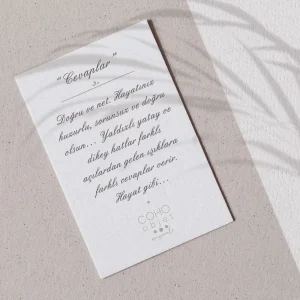 "Cevaplar"
Doğru ve net. Hayatınız
huzurla, sorunsuz ve doğru
olsun... Yaldızlı yatay ve
dikey hatlar farklı
açılardan gelen ışıklara
farklı cevaplar verir.
Hayat gibi...
COHO
objet